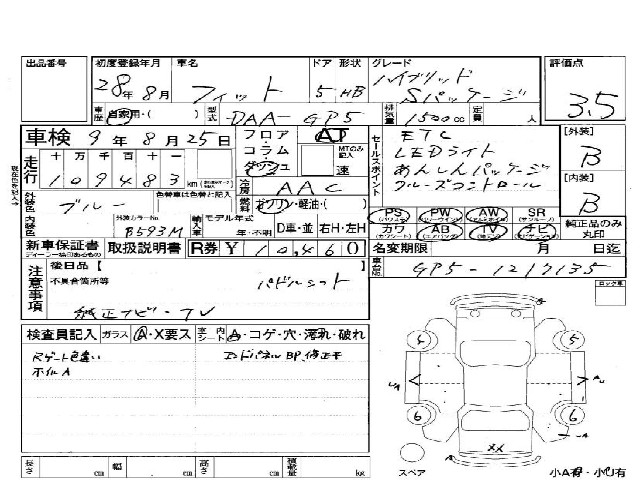 出品番号 初度登録年月 車名 ドア 形状 グレード 評価点
28年8月 フィット 5 HB ハイブリッド Sパッケージ 3.5
車歴 自家用・( ) 型式 DAA-GP5 排気量 1500cc 定員 人
車検 9年8月25日 フロア・コラム ダッシュ AT MTのみ記入 速
走行 十 万 千 百 十 一
109483 km
冷房 AAC
外装色 ブルー 色替車は色替と記入 燃料 ガソリン・軽油・( )
内装色 外装カラーNo B593M 輸入車 モデル年式 年・不明 D車・並 右H・左H
セールスポイント ETC
LEDライト
あんしんパッケージ
クルーズコントロール
[外装] B
[内装] B
PS PW AW SR
カワ AB TV ナビ 純正品のみ丸印
新車保証書 取扱説明書 R券 ¥10,460 名変期限 月 日迄
車台No. GP5-1217135
注意事項 後日品【 】
不具合箇所等 パドルシフト
純正ナビ・TV
ロック車
検査員記入 ガラス A・X要ス 室内 シート A・コゲ・穴・汚れ・破れ
Rゲート色違い
ホイルA
長さ cm 幅 cm 高さ cm 積載量 kg
A
4 5
UA AU
6 6
A
XX
A
スペア 小A有・小U有